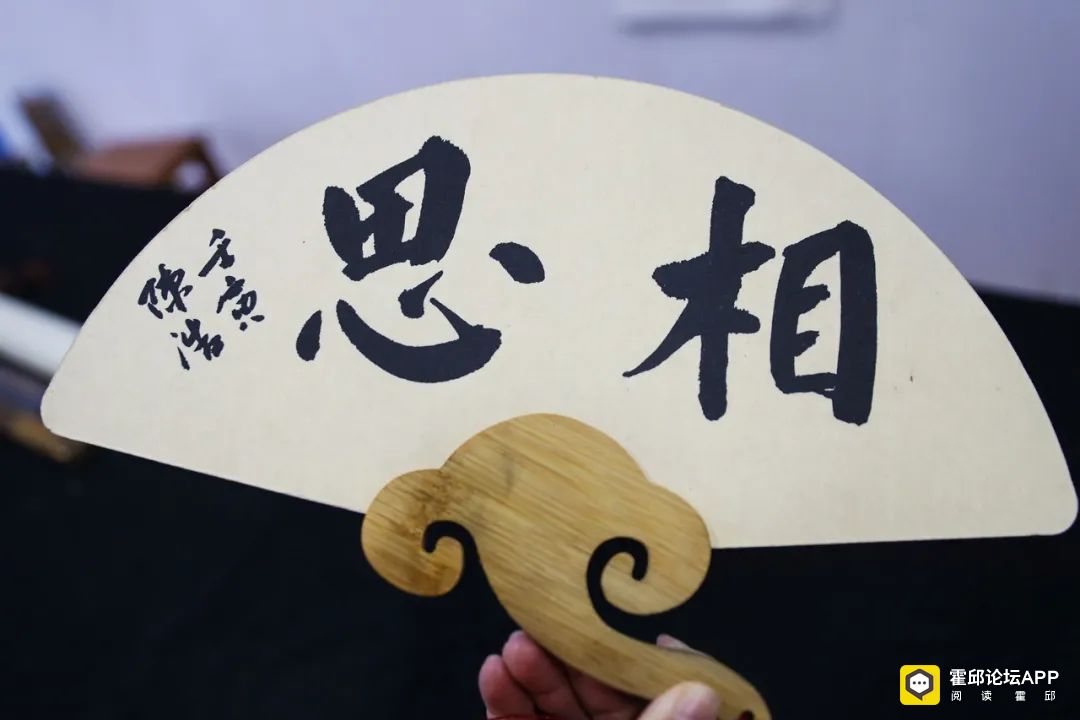 相思
壬寅
陳浩
霍邱论坛APP
阅读霍邱